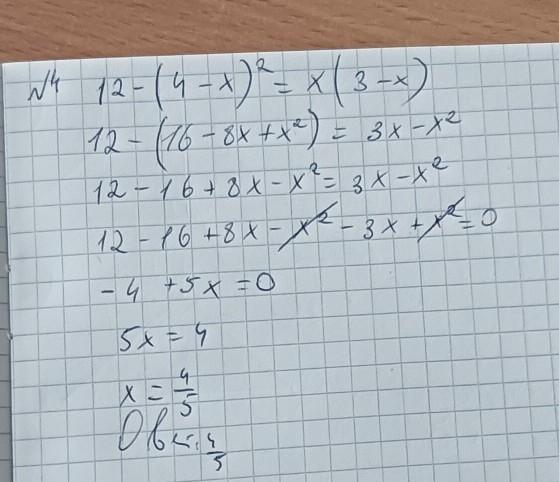 №4 12 - (4 - x)² = x(3 - x)
12 - (16 - 8x + x²) = 3x - x²
12 - 16 + 8x - x² = 3x - x²
12 - 16 + 8x - x² - 3x + x² = 0
- 4 + 5x = 0
5x = 4
x = 4/5
Ответ: 4/5